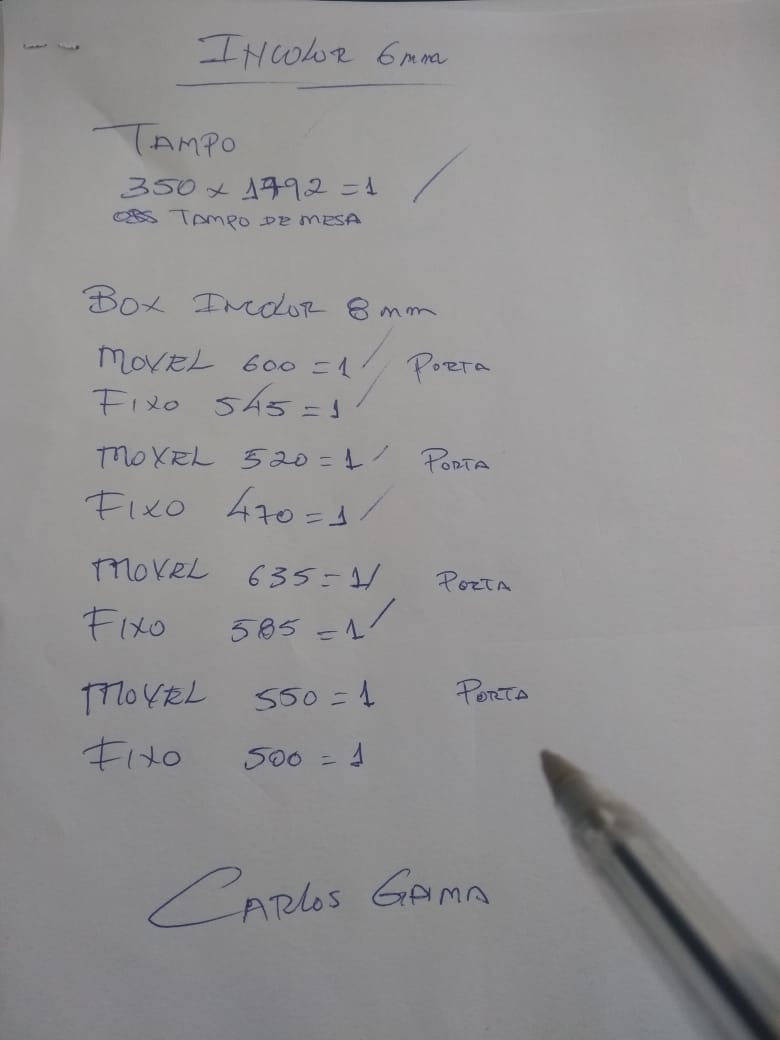 INCOLOR 6mm
TAMPO
350 x 1792 = 1
OBS TAMPO DE MESA
BOX INCOLOR 8mm
MOVEL 600 = 1 PORTA
FIXO 545 = 1
MOVEL 520 = 1 PORTA
FIXO 470 = 1
MOVEL 635 = 1 PORTA
FIXO 585 = 1
MOVEL 550 = 1 PORTA
FIXO 500 = 1
CARLOS GAMA